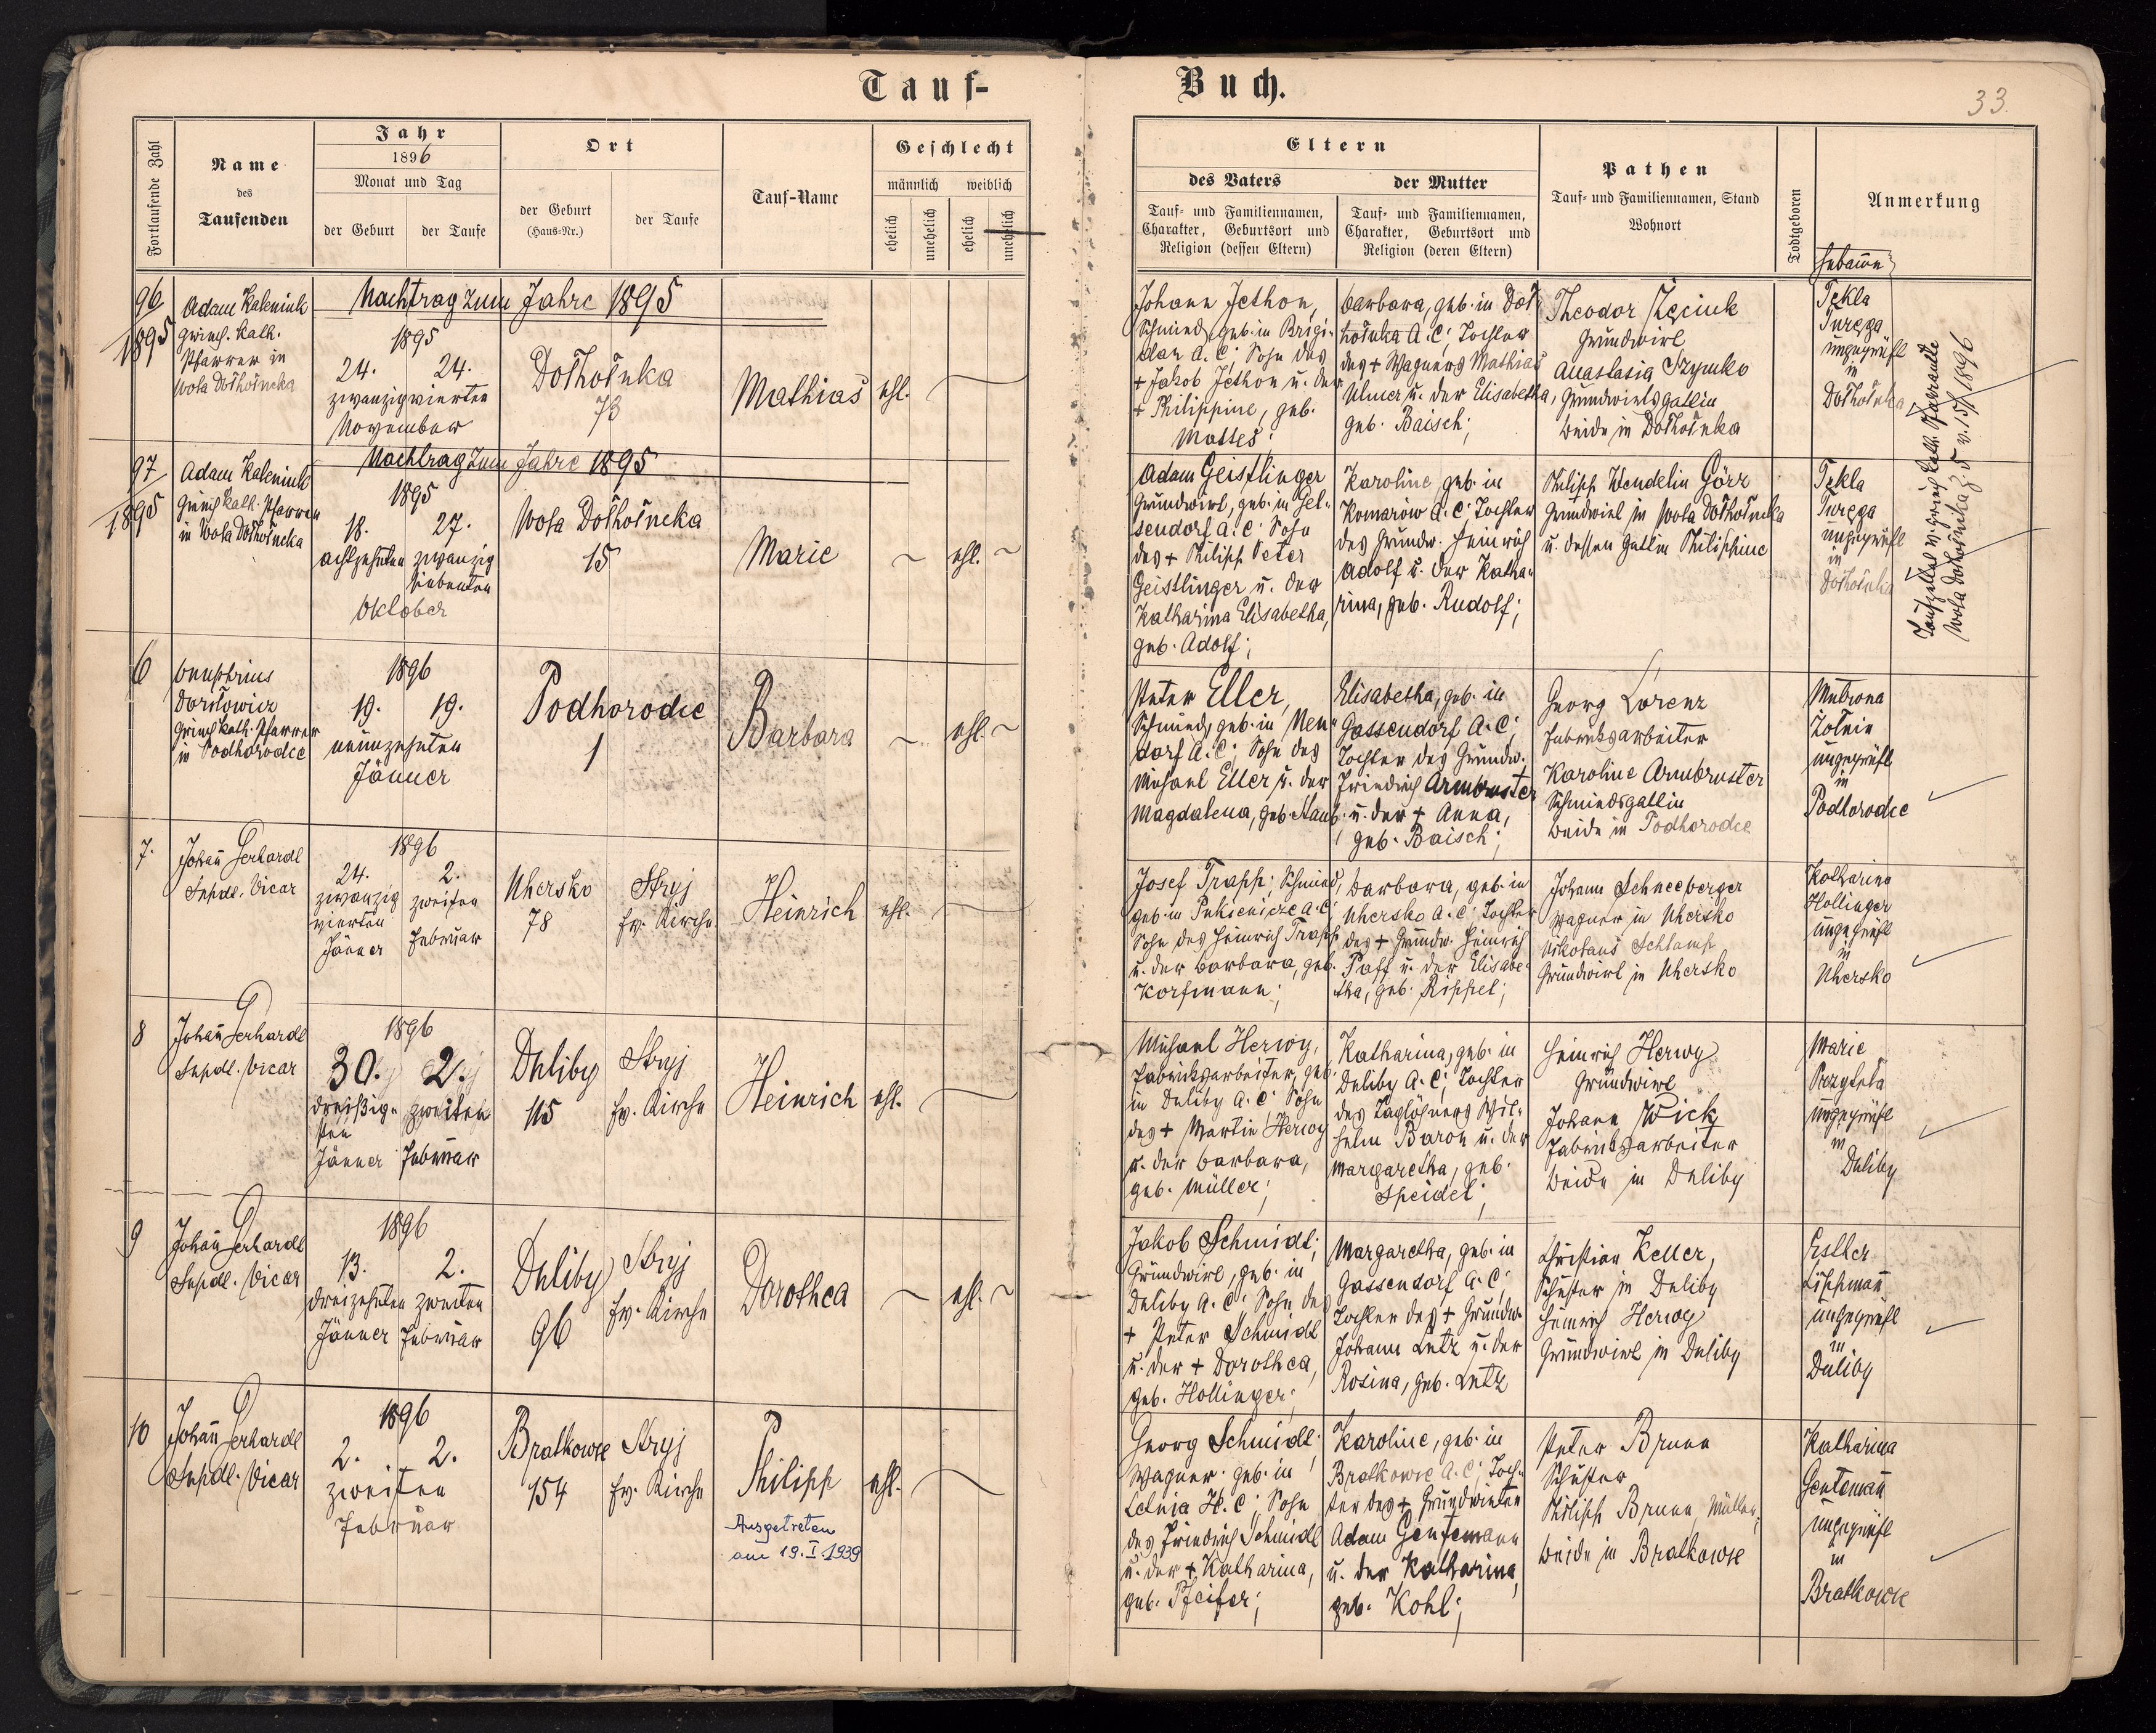 Tauf-
Buch.
33.
Fortlaufende Zahl
Name
des
Taufenden
Jahr
1896
Monat und Tag
der Geburt
der Taufe
Ort
der Geburt
(Haus-Nr.)
der Taufe
Tauf-Name
Geschlecht
männlich
weiblich
ehelich
unehelich
ehelich
unehelich
Eltern
des Vaters
der Mutter
Tauf- und Familiennamen,
Charakter, Geburtsort und
Religion (dessen Eltern)
Tauf- und Familiennamen,
Charakter, Geburtsort und
Religion (deren Eltern)
Pathen
Tauf- und Familiennamen, Stand
Wohnort
Todtgeboren
Anmerkung
Hebamme
96
1895
Adam Kaleniuk
griech. kath.
Pfarrer in
Wola Dołhołucka
Nachtrag zum Jahre 1895
1895
24.
24.
zwanzigvierten
November
Dołhołuka
73
Mathias
ehl.
Johann Jethon,
Schmied, geb. in Brigi-
dau A.C; Sohn des
+ Jakob Jethon u. der
+ Philippine, geb.
Mattes;
Barbara, geb. in Doł-
hołuka A.C; Tochter
des + Wagners Mathias
Ulmer u. der Elisabetha,
geb. Baisch;
Theodor
Grundwirt
Anastasia Szymko
Grundwirtsgattin
beide in Dołhołuka
Tekla
Turega
ungeprüft
in
Dołhołuka
97
1895
Adam Kaleniuk
griech kath. Pfarrer
in Wola Dołhołucka
Nachtrag zum Jahre 1895
1895
18.
27.
achtzehnten
zwanzig
siebenten
Oktober
Wola Dołhołucka
15
Marie
ehl.
Adam Geistlinger
Grundwirt, geb. in Gel-
sendorf A.C; Sohn
des + Philipp Peter
Geistlinger u. der
Katharina Elisabetha,
geb. Adolf;
Karoline, geb. in
Komarow A.C; Tochter
des Grundw. Heinrich
Adolf u. der Katha-
rina, geb. Rudolf;
Philipp Wendelin Görz
Grundwirt in Wola Dołhołucka
u. dessen Gattin Philippine
Tekla
Turega
ungeprüft
in
Dołhołuka
Wola Dołhołucka Z 5 v. 15/1 1896
6
Onuphrius
griech kath. Pfarrer
in Podhorodce
1896
19.
19.
neunzehnten
Jänner
Podhorodce
1
Barbara
ehl.
Peter Eller,
Schmied, geb. in Neu-
dorf A.C; Sohn des
Michael Eller u. der
Magdalena, geb. Haub
Elisabetha, geb. in
Gassendorf A.C;
Tochter des Grundw.
Friedrich Armbruster
u. der + Anna,
geb. Baisch;
Georg Lorenz
Fabriksarbeiter
Karoline Armbruster
Schmiedsgattin
beide in Podhorodce
ungeprüft
in
Podhorodce
7.
Johañ Gerhardt
Supdt. Vicar
1896
24.
2.
zwanzig
vierten
Jänner
zweiten
Februar
Uhersko
78
Stryj
ev. Kirche
Heinrich
ehl.
Josef Trapp; Schmied,
geb. in Pukienicze A.C;
Sohn des Heinrich Trapp
u. der Barbara, geb.
Korfmann;
Barbara, geb. in
Uhersko A.C; Tochter
des + Grundw. Heinrich
Paff u. der Elisabe-
tha, geb. Rippel;
Johann Schneeberger
Wagner in Uhersko
Nikolaus Schlamp
Grundwirt in Uhersko
Katharina
Hollinger
ungeprüft
in
Uhersko
8
Johañ Gerhardt
Supdt. Vicar
1896
30.
2.
dreißig-
sten
Jänner
zweiten
Februar
Duliby
115
Stryj
ev. Kirche
Heinrich
ehl.
Michael Herwy,
Fabriksarbeiter, geb.
in Duliby A.C; Sohn
des + Martin Herwy
u. der Barbara,
geb. Müller;
Katharina, geb. in
Duliby A.C; Tochter
des Taglöhners Wil-
helm Baron u. der
Margaretha, geb.
Speidel;
Heinrich Herwy
Grundwirt
Johann Wick
Fabriksarbeiter
beide in Duliby
Marie
ungeprüft
in
Duliby
9
Johañ Gerhardt
Supdt. Vicar
1896
13.
2.
dreizehnten zweiten
Jänner Februar
Duliby
96
Stryj
ev. Kirche
Dorothea
ehl.
Jakob Schmidt;
Grundwirt, geb. in
Duliby A.C; Sohn des
+ Peter Schmidt
u. der + Dorothea,
geb. Hollinger;
Margaretha, geb. in
Gassendorf A.C;
Tochter des + Grundw.
Johann Lutz u. der
Rosina, geb. Lutz
Christian Keller,
Schuster in Duliby
Heinrich Herwy
Grundwirt in Duliby
Esther
Lippmañ
ungeprüft
in
Duliby
10
Johañ Gerhardt
Supdt. Vicar
1896
2.
2.
zweiten
Februar
Bratkowce
154
Stryj
ev. Kirche
Philipp
Ausgetreten
am 19.I.1939
ehl.
Georg Schmidt;
Wagner geb. in
Letnia H.C; Sohn
des Friedrich Schmidt
u. der + Katharina,
geb. Pfeifer;
Karoline, geb. in
Bratkowce A.C; Toch-
ter des + Grundwirten
Adam Gentemann
u. der Katharina,
geb. Kohl;
Peter Brunn
Schuster
Philipp Brunn, Müller,
beide in Bratkowce
Katharina
Gentemañ
ungeprüft
in
Bratkowce